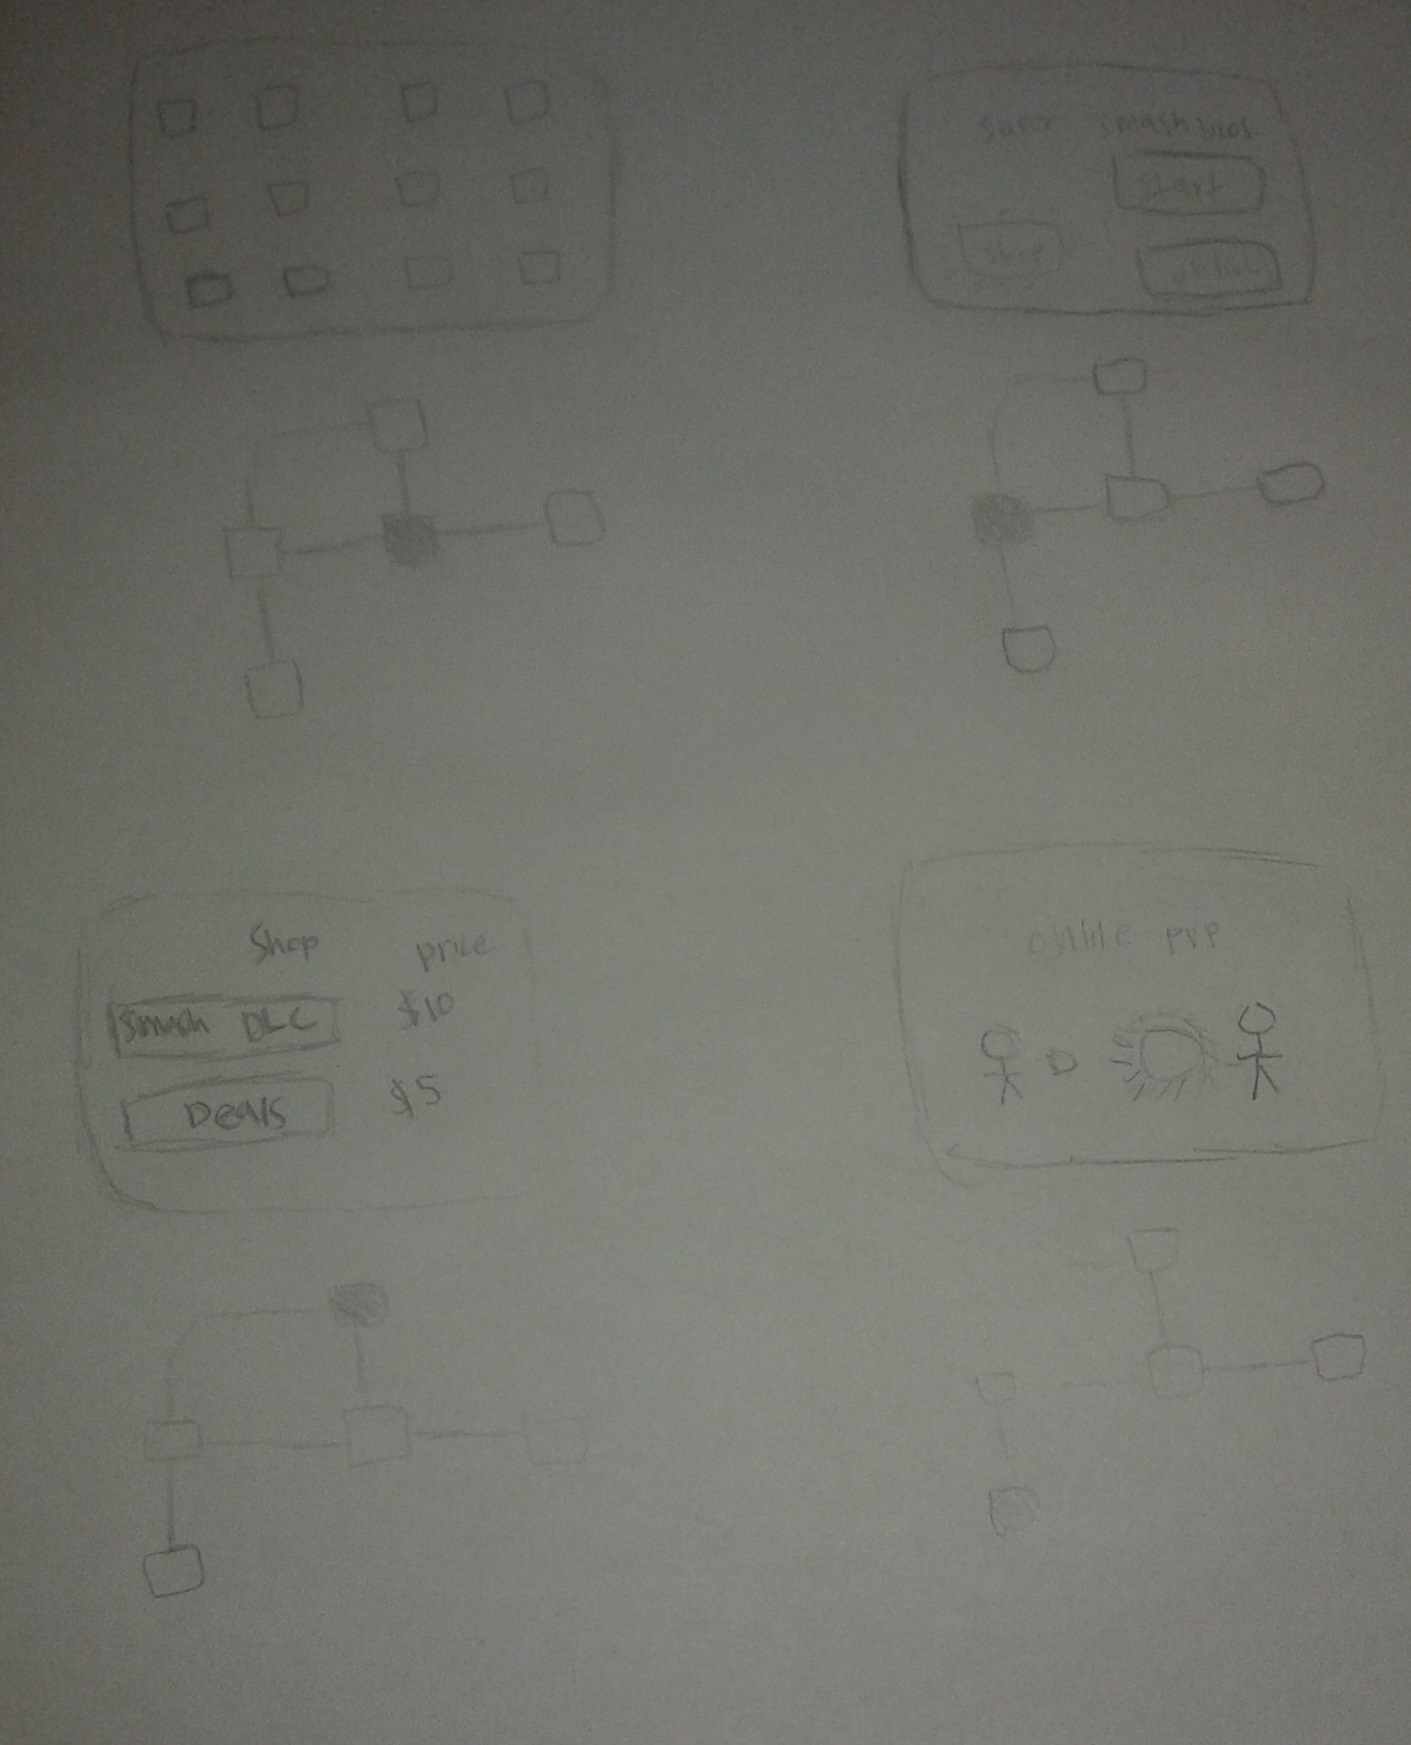 super smash bros
start
shop
online
Shop price
Smash DLC $10
Deals $5
online pvp